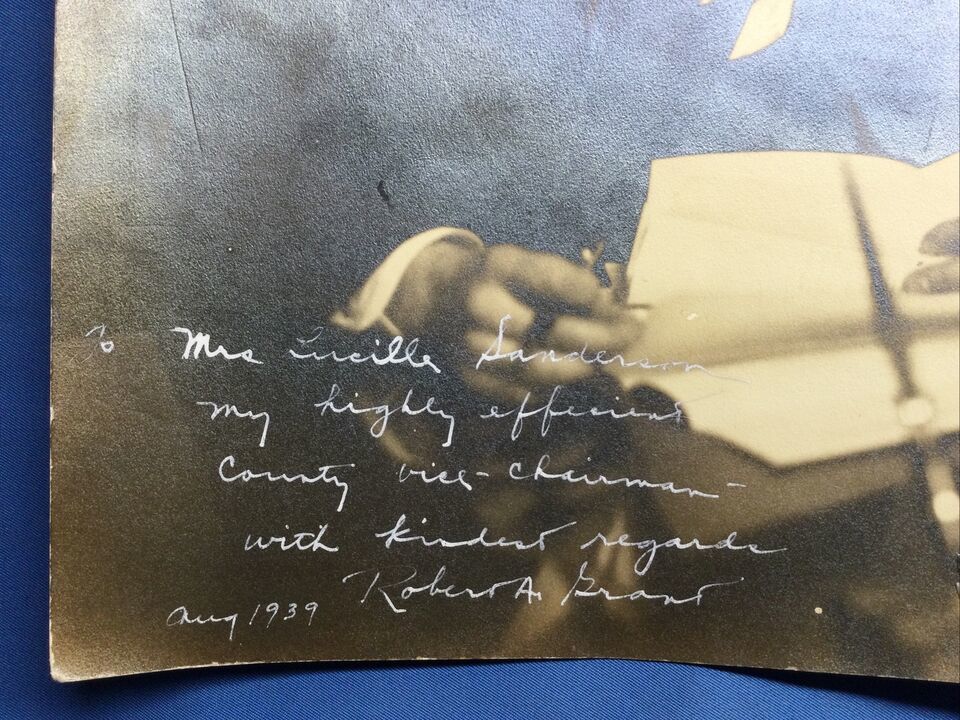 To Mrs Lucille Sanderson
my highly effecient
County vice-chairman-
with kindest regards
Robert A. Grant
Aug 1939